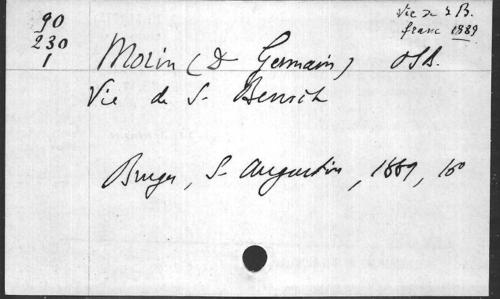 90
230
1
Vie de S B.
franc 1889
Morin (D Germain) OSB.
Vie de S. Benoît
Bruges, S. Augustin, 1889, 16°